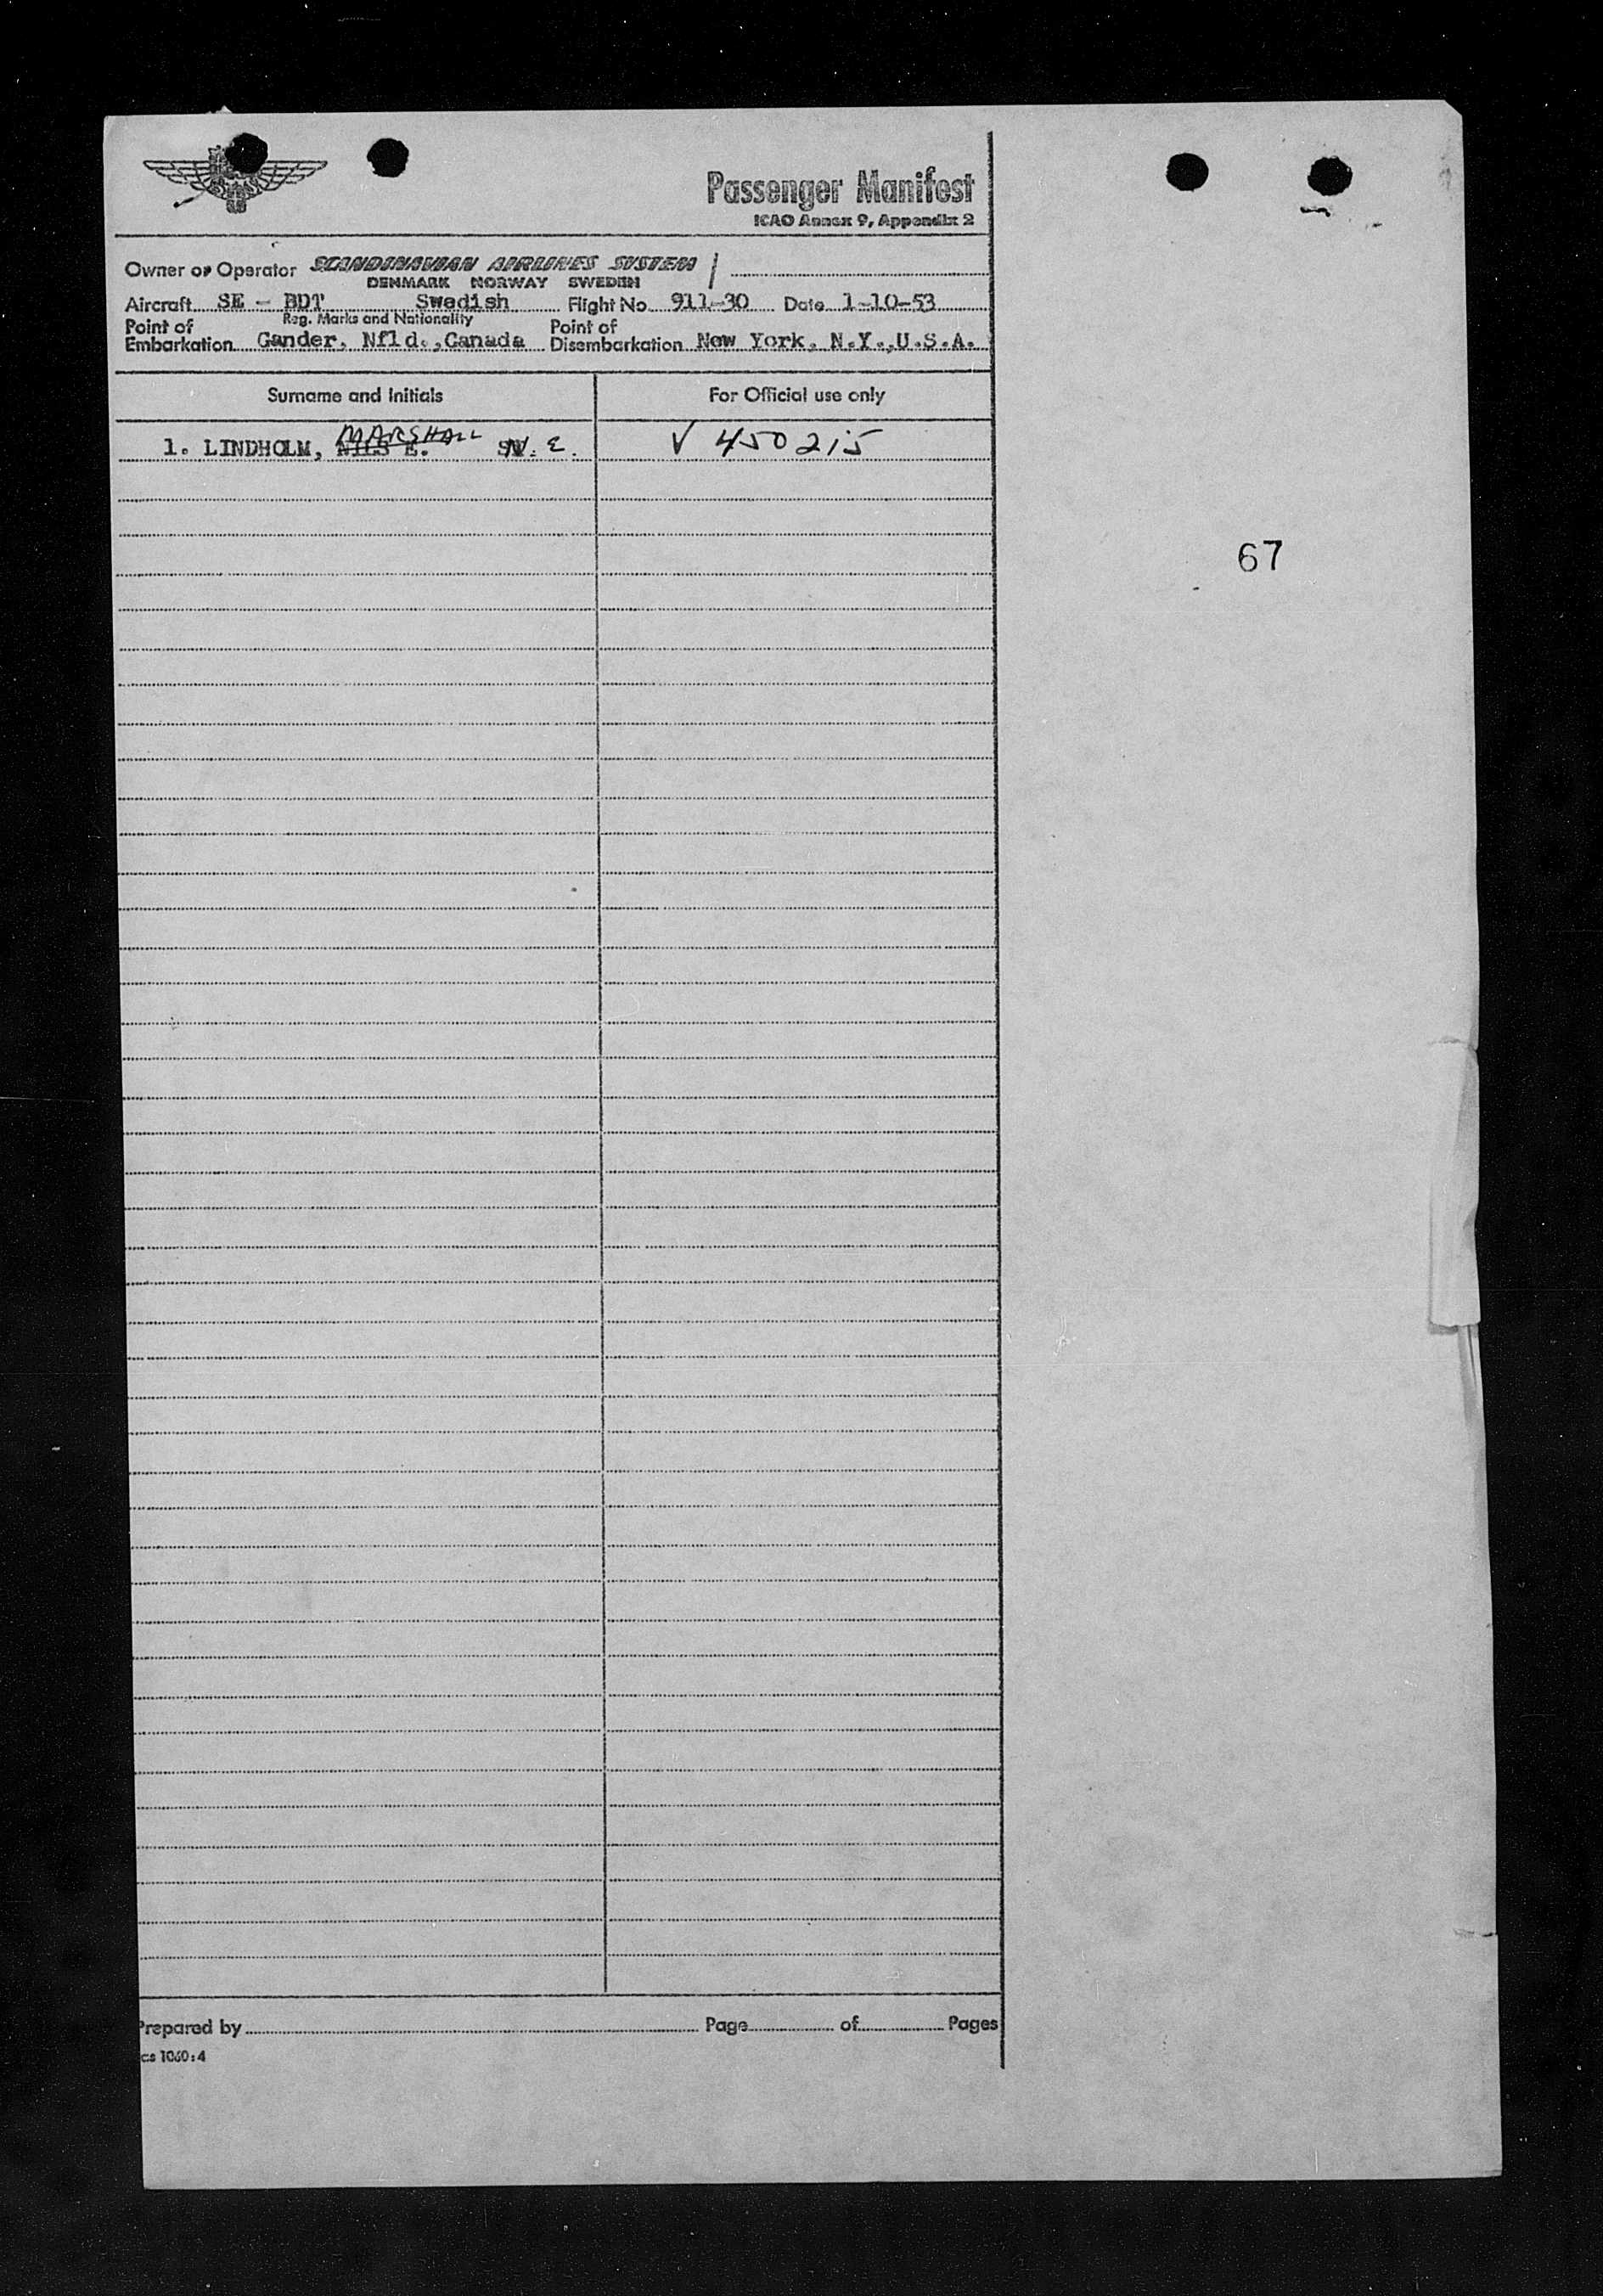 SAS
Passenger Manifest
ICAO Annex 9, Appendix 2
Owner or Operator SCANDINAVIAN AIRLINES SYSTEM /
DENMARK NORWAY SWEDEN
Aircraft SE - BDT Swedish Flight No. 911-30 Date 1-10-53
Reg. Marks and Nationality
Point of Embarkation Gander, Nfld., Canada Point of Disembarkation New York, N.Y., U.S.A.
Surname and Initials For Official use only
MARSHALL
1. LINDHOLM, NILS E. N. E. V 450215
67
Prepared by Page of Pages
cs 1060:4